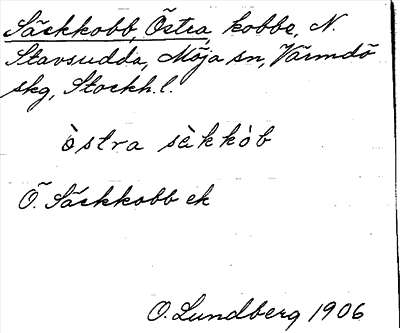 Säckkobb, Östra, kobbe, N.
Stavsudda, Möja sn, Värmdö
skg, Stockh. l.
òstra sàkkòb
Ö. Säckkobb ek
O. Lundberg 1906